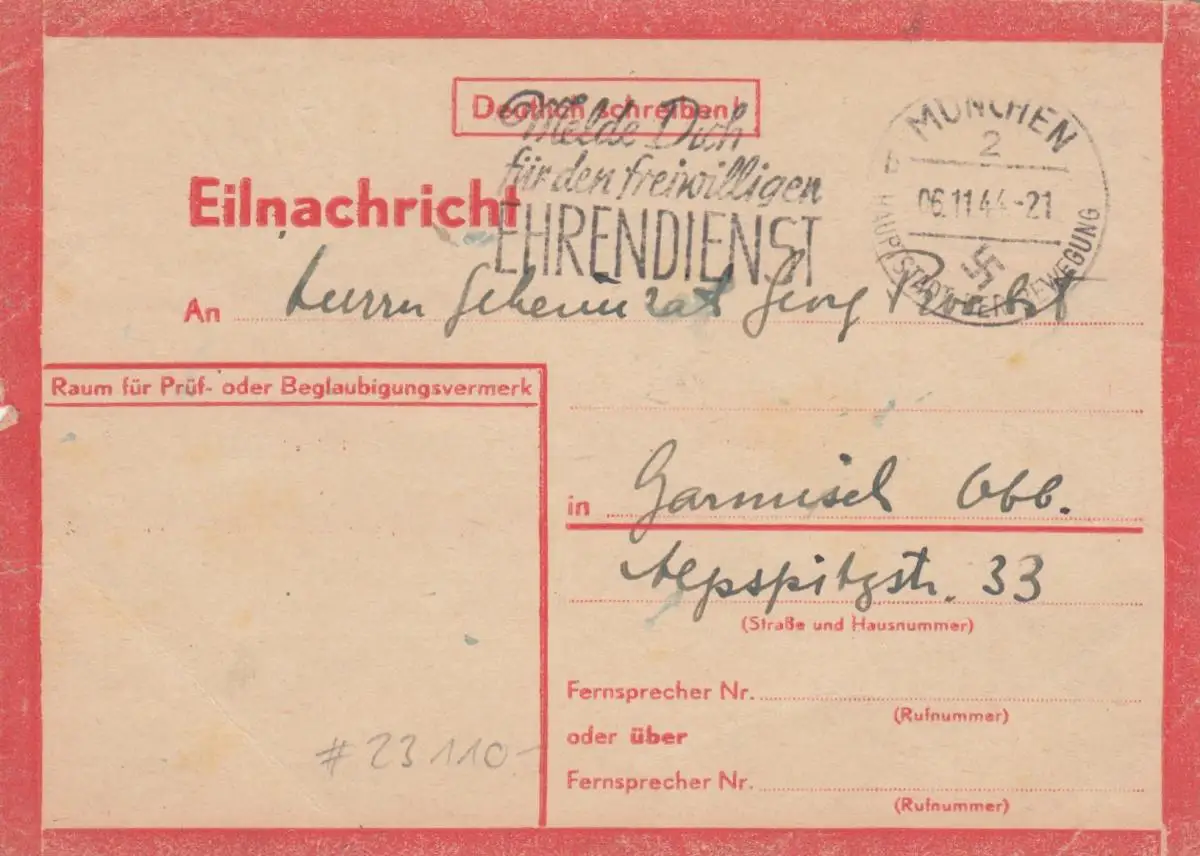 Deutlich schreiben!
Melde Dich
für den freiwilligen
EHRENDIENST
MÜNCHEN
2
b
06.11.44-21
HAUPTSTADT DER BEWEGUNG
Eilnachricht
An Herrn Geheimrat Georg
Raum für Prüf- oder Beglaubigungsvermerk
in Garmisch Obb.
Alpspitzstr. 33
(Straße und Hausnummer)
Fernsprecher Nr.
(Rufnummer)
oder über
Fernsprecher Nr.
(Rufnummer)
#23110-